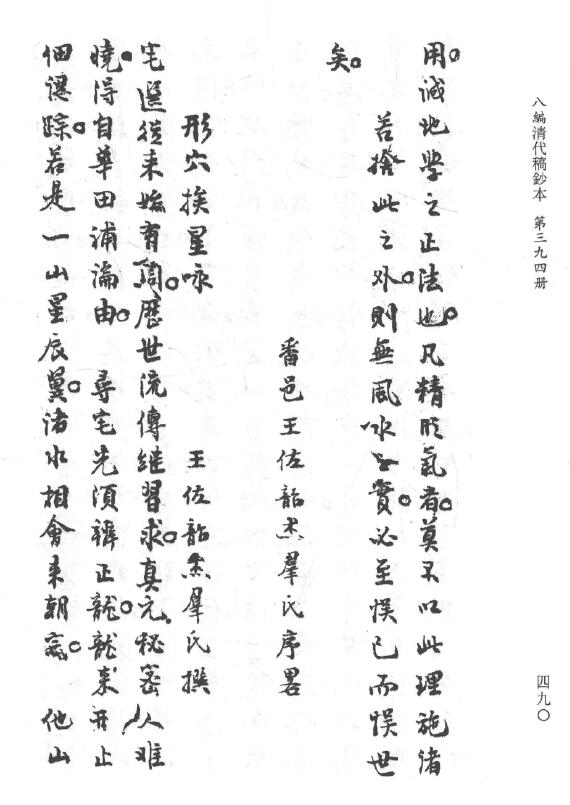 八編清代稿鈔本 第三九四册
四九〇
用。誠地學之正法也。凡精氣者。莫不以此理施諸
若捨此之外。則無風水之實。必至悞己而悞世
矣。
番邑王佐韶杰羣氏序畧
形穴挨星咏 王佐韶杰羣氏撰
宅選從來始有。歷世流傳繼習求。真元秘密人难
曉。得自華田浦瀹由。尋宅先須辨正龍。龍来开止
細認踪。若是一山星辰異。諸水相會来朝。他山